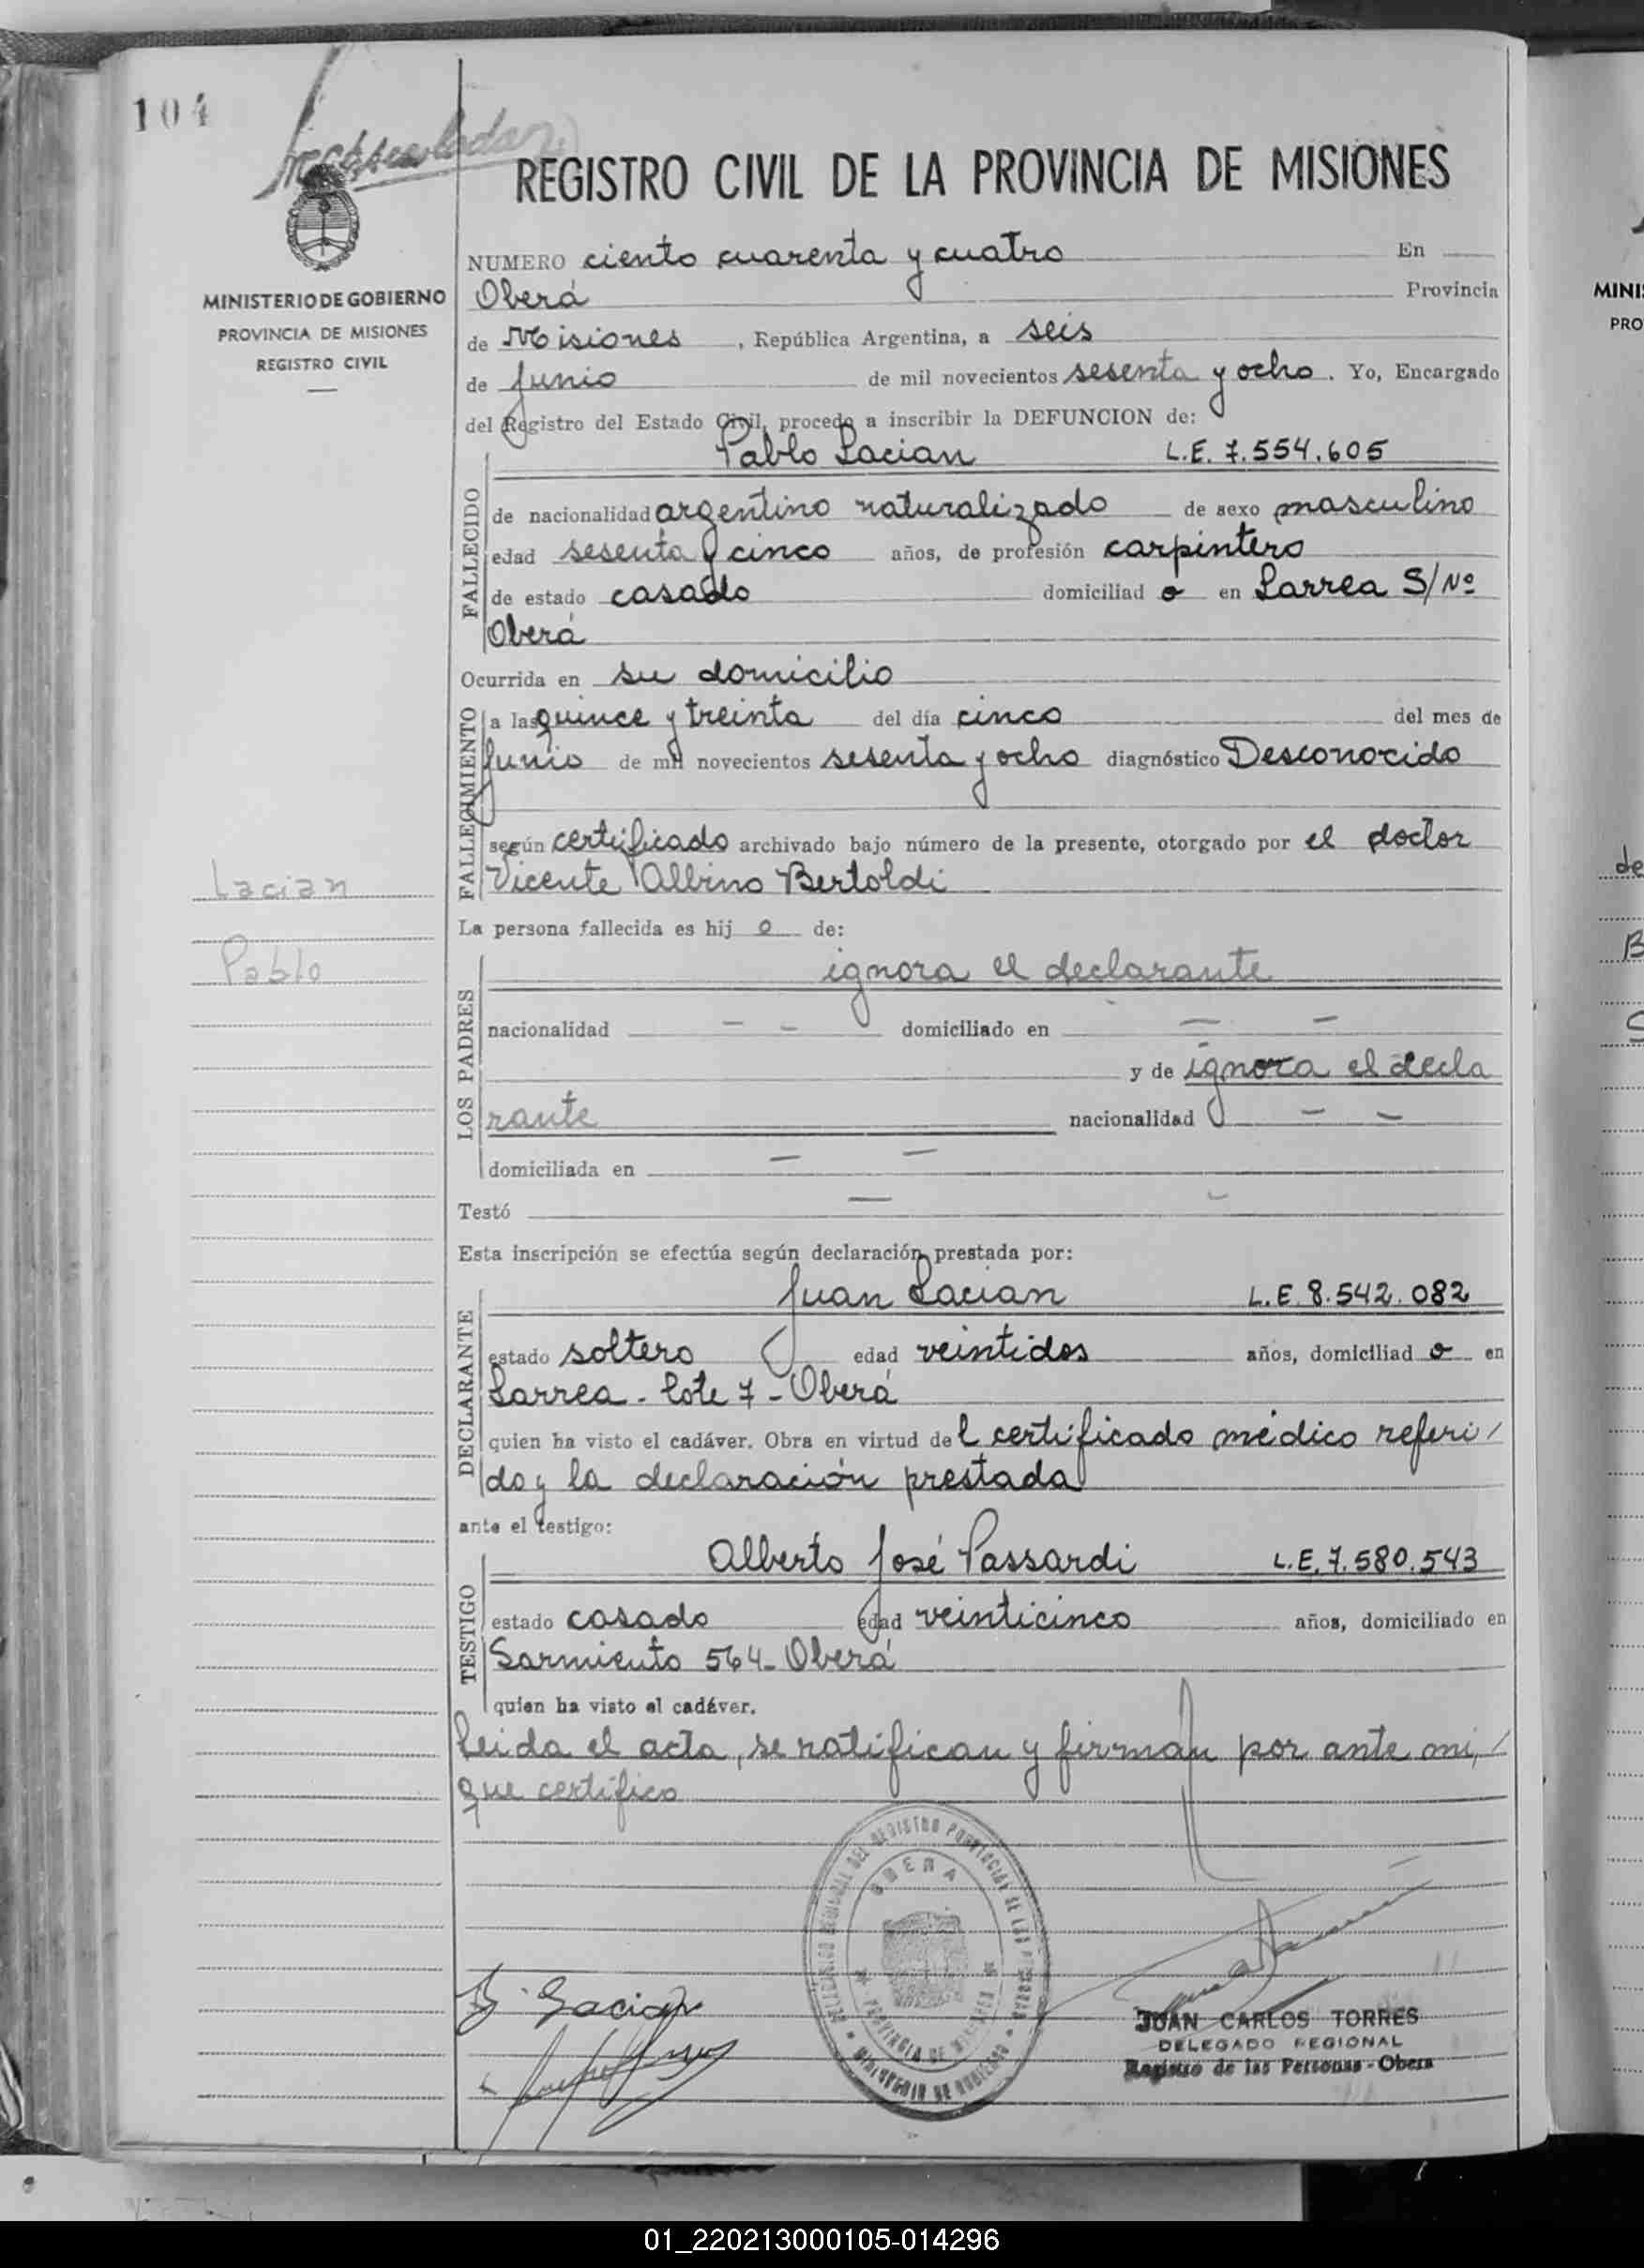 104
REGISTRO CIVIL DE LA PROVINCIA DE MISIONES
MINISTERIO DE GOBIERNO
PROVINCIA DE MISIONES
REGISTRO CIVIL
NUMERO ciento cuarenta y cuatro En
Oberá Provincia
de Misiones , República Argentina, a seis
de Junio de mil novecientos sesenta y ocho. Yo, Encargado
del Registro del Estado Civil, procedo a inscribir la DEFUNCION de:
Pablo Lacian L.E. 7.554.605
FALLECIDO
de nacionalidad argentino naturalizado de sexo masculino
edad sesenta y cinco años, de profesión carpintero
de estado casado domiciliad o en Larrea S/Nº
Oberá
Ocurrida en su domicilio
FALLECIMIENTO
a las quince y treinta del día cinco del mes de
Junio de mil novecientos sesenta y ocho diagnóstico Desconocido
según certificado archivado bajo número de la presente, otorgado por el doctor
Vicente Albino Bertoldi
Lacian
Pablo
La persona fallecida es hij o de:
LOS PADRES
ignora el declarante
nacionalidad — — domiciliado en — —
y de ignora el decla
rante nacionalidad — —
domiciliada en — —
Testó — —
Esta inscripción se efectúa según declaración prestada por:
DECLARANTE
Juan Lacian L.E. 8.542.082
estado soltero edad veintidos años, domiciliad o en
Larrea - lote 7 - Oberá
quien ha visto el cadáver. Obra en virtud de l certificado médico referi/
do y la declaración prestada
ante el testigo:
TESTIGO
Alberto José Passardi L.E. 7.580.543
estado casado edad veinticinco años, domiciliado en
Sarmiento 564 - Oberá
quien ha visto el cadáver.
Leida el acta, se ratifican y firman por ante mi, /
que certifico
OBERA
PROVINCIA DE MISIONES
MINISTERIO DE GOBIERNO
J. Lacian
JUAN CARLOS TORRES
DELEGADO REGIONAL
Registro de las Personas - Obera
MINI
PRO
de
B
01_220213000105-014296